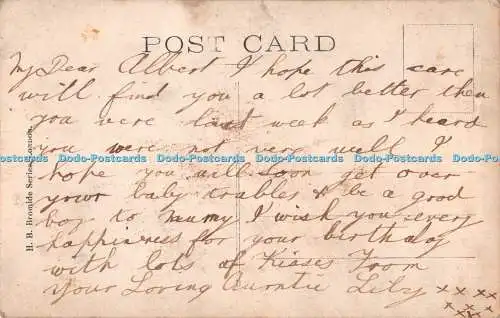 POST CARD
My Dear Albert I hope this care
will find you a lot better then
you were last week as I heard
you were not very well I
hope you will soon get over
your baby trables & be a good
boy to mumy I wish you every
happiness for your birthday
with lots of Kisses From
your Loving Aurntie Lily x x x x
x x x
H. B. Bromide Series, London.
Dodo-Postcards Dodo-Postcards Dodo-Postcards Dodo-Postcards Dodo-Postcards Dodo-Postcards